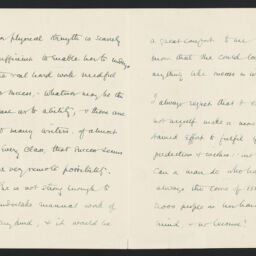 or physical strength is scarcely
sufficient to enable her to undergo
the real hard work needful
for success - whatever may be the
case as to ability, & there are
so many writers, of almost
every class, that success seems
a very remote possibility.
She is not strong enough to
undertake manual work of
any kind, & it would be
a great comfort to me to
know that she could
anything like success in
I always regret that
not myself make a more
effort to fulfil your
prediction & wishes: -
can a man do who has
always the care of
2000 people
mind, & no leisure!